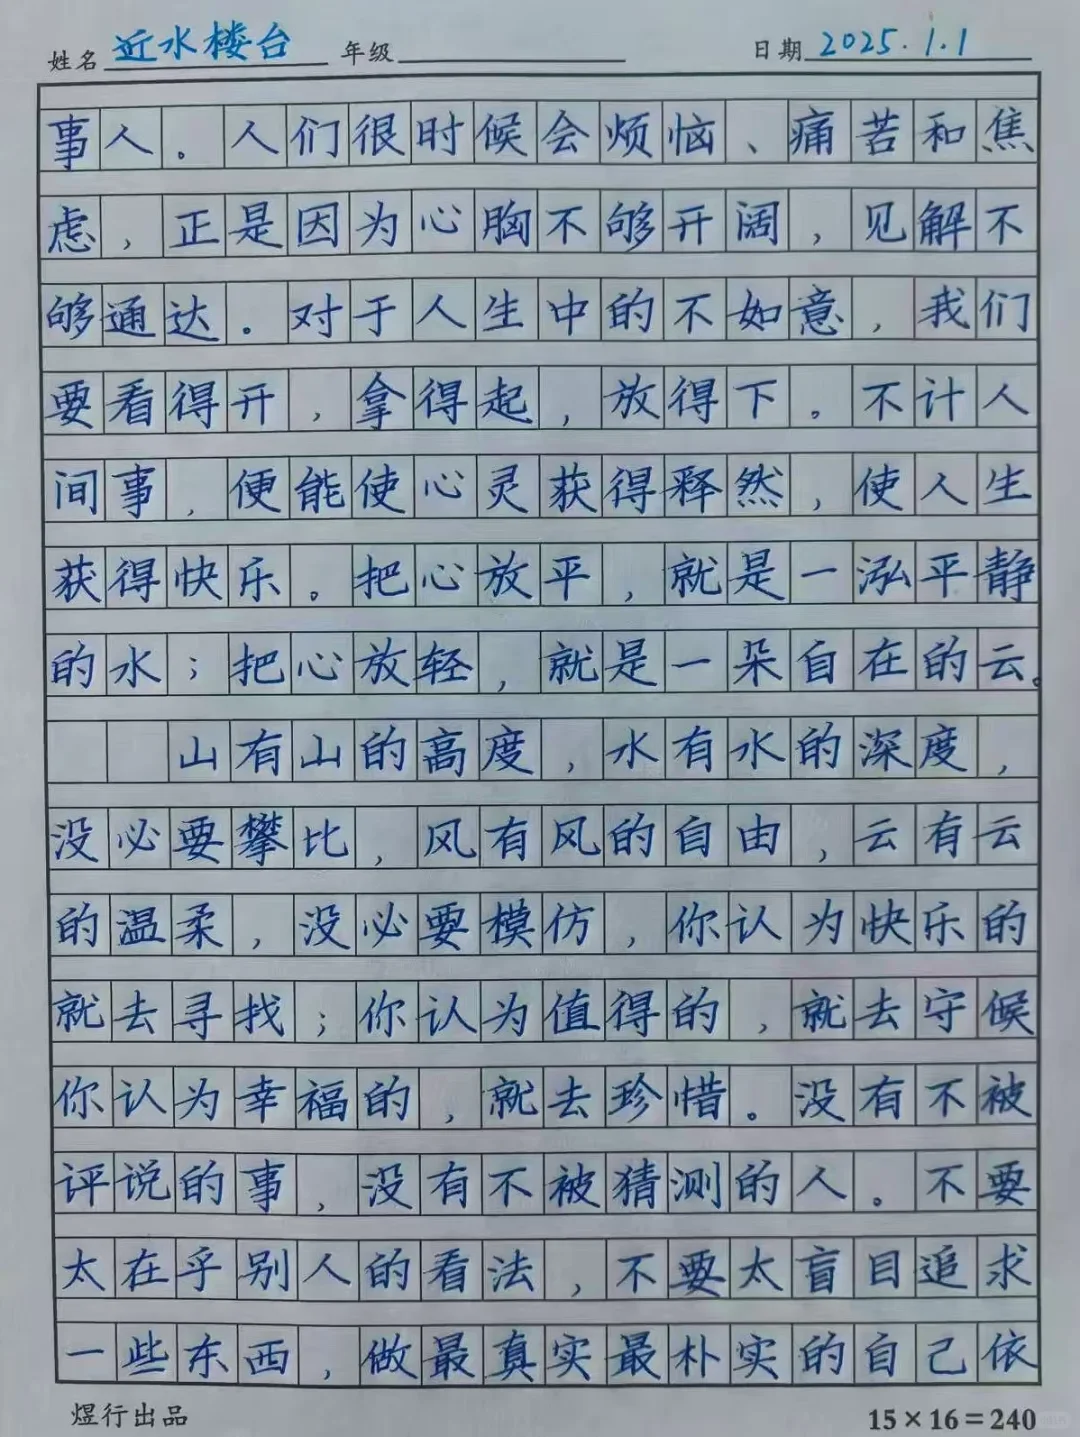 姓名 近水楼台 年级 日期 2025.1.1
事人。人们很时候会烦恼、痛苦和焦
虑，正是因为心胸不够开阔，见解不
够通达。对于人生中的不如意，我们
要看得开，拿得起，放得下。不计人
间事，便能使心灵获得释然，使人生
获得快乐。把心放平，就是一泓平静
的水；把心放轻，就是一朵自在的云。
山有山的高度，水有水的深度，
没必要攀比，风有风的自由，云有云
的温柔，没必要模仿，你认为快乐的
就去寻找；你认为值得的，就去守候
你认为幸福的，就去珍惜。没有不被
评说的事，没有不被猜测的人。不要
太在乎别人的看法，不要太盲目追求
一些东西，做最真实最朴实的自己依
煜行出品 15×16=240